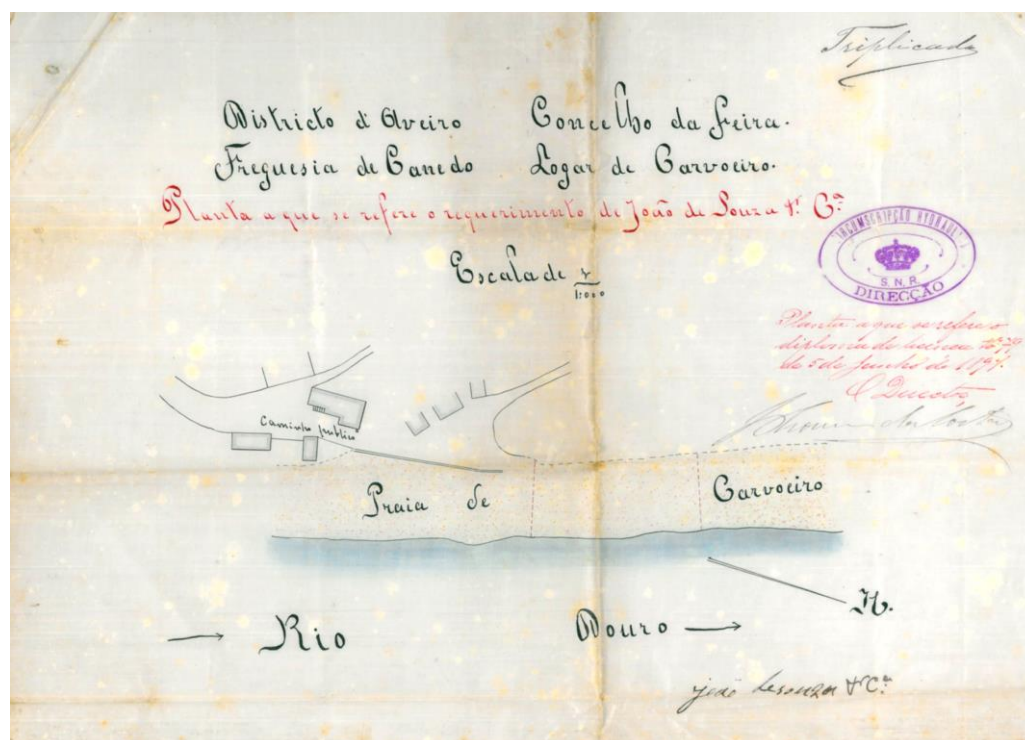 Triplicado
Districto d'Aveiro Concelho da Feira.
Freguesia de Canedo Logar de Carvoeiro.
Planta a que se refere o requerimento de João de Souza & Cª
CIRCUMSCRIPÇÃO HYDRAUL
S. N. R.
DIRECÇÃO
Escala de 1/1:000
Planta a que se refere o
diploma de licença
de 5 de Junho de 1897.
O Director
Caminho publico
Praia de Carvoeiro
N.
Rio Douro
joão de souza & Cª